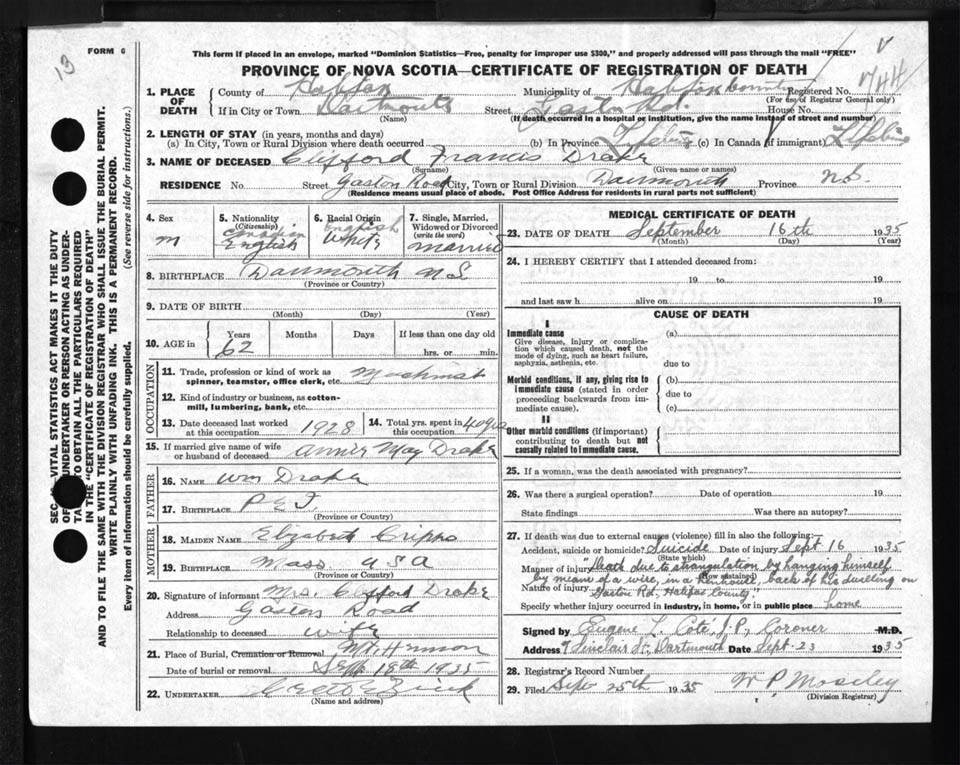 FORM 6
13
This form if placed in an envelope, marked "Dominion Statistics—Free, penalty for improper use $300," and properly addressed will pass through the mail "FREE"
PROVINCE OF NOVA SCOTIA—CERTIFICATE OF REGISTRATION OF DEATH
1. PLACE OF DEATH
County of Halifax Municipality of Halifax County Registered No.
(For use of Registrar General only)
If in City or Town Dartmouth Street Gaston Rd. House No.
(Name) (If death occurred in a hospital or institution, give the name instead of street and number)
2. LENGTH OF STAY (in years, months and days)
(a) In City, Town or Rural Division where death occurred (b) In Province Lifetime (c) In Canada (if immigrant) Lifetime
3. NAME OF DECEASED Clifford Francis Drake
(Surname) (Given name or names)
RESIDENCE No. Street Gaston Road City, Town or Rural Division Dartmouth Province N.S.
(Residence means usual place of abode. Post Office Address for residents in rural parts not sufficient)
4. Sex
m
5. Nationality
(Citizenship)
Canadian
English
6. Racial Origin
English
White
7. Single, Married, Widowed or Divorced
(write the word)
married
8. BIRTHPLACE Dartmouth N S
(Province or Country)
9. DATE OF BIRTH
(Month) (Day) (Year)
10. AGE in
Years Months Days If less than one day old
62 hrs. or min.
OCCUPATION
11. Trade, profession or kind of work as spinner, teamster, office clerk, etc. Machinist
12. Kind of industry or business, as cotton-mill, lumbering, bank, etc.
13. Date deceased last worked at this occupation 1928
14. Total yrs. spent in this occupation 40
15. If married give name of wife or husband of deceased Annie May Drake
FATHER
16. NAME Wm Drake
17. BIRTHPLACE P E I
(Province or Country)
MOTHER
18. MAIDEN NAME Elizabeth Cripps
19. BIRTHPLACE Mass U S A
(Province or Country)
20. Signature of informant Mrs. Clifford Drake
Address Gaston Road
Relationship to deceased wife
21. Place of Burial, Cremation or Removal Mt Hermon
Date of burial or removal Sept 18th 1935
22. UNDERTAKER
(Name and address)
MEDICAL CERTIFICATE OF DEATH
23. DATE OF DEATH September 16th 1935
(Month) (Day) (Year)
24. I HEREBY CERTIFY that I attended deceased from:
19 to 19
and last saw h alive on 19
CAUSE OF DEATH
I
Immediate cause
Give disease, injury or complication which caused death, not the mode of dying, such as heart failure, asphyxia, asthenia, etc.
(a)
due to
Morbid conditions, if any, giving rise to immediate cause (stated in order proceeding backwards from immediate cause).
(b)
due to
(c)
II
Other morbid conditions (if important) contributing to death but not causally related to immediate cause.
25. If a woman, was the death associated with pregnancy?
26. Was there a surgical operation? Date of operation 19
State findings Was there an autopsy?
27. If death was due to external causes (violence) fill in also the following:
Accident, suicide or homicide? Suicide Date of injury Sept 16 1935
(State which)
Manner of injury Death due to strangulation by hanging himself
(How sustained)
by means of a wire, in a henhouse, back of his dwelling on
Nature of injury Gaston Rd, Halifax County
Specify whether injury occurred in industry, in home, or in public place home
Signed by Eugene L. Cote, J.P., Coroner M.D.
Address 7 Sinclair St, Dartmouth Date Sept. 23 1935
28. Registrar's Record Number
29. Filed Sept 25th 1935 W P Moseley
(Division Registrar)
VITAL STATISTICS ACT MAKES IT THE DUTY
UNDERTAKER OR PERSON ACTING AS UNDER-
TO OBTAIN ALL THE PARTICULARS REQUIRED
IN THE "CERTIFICATE OF REGISTRATION OF DEATH"
AND TO FILE THE SAME WITH THE DIVISION REGISTRAR WHO SHALL ISSUE THE BURIAL PERMIT.
WRITE PLAINLY WITH UNFADING INK. THIS IS A PERMANENT RECORD.
Every item of information should be carefully supplied. (See reverse side for instructions.)